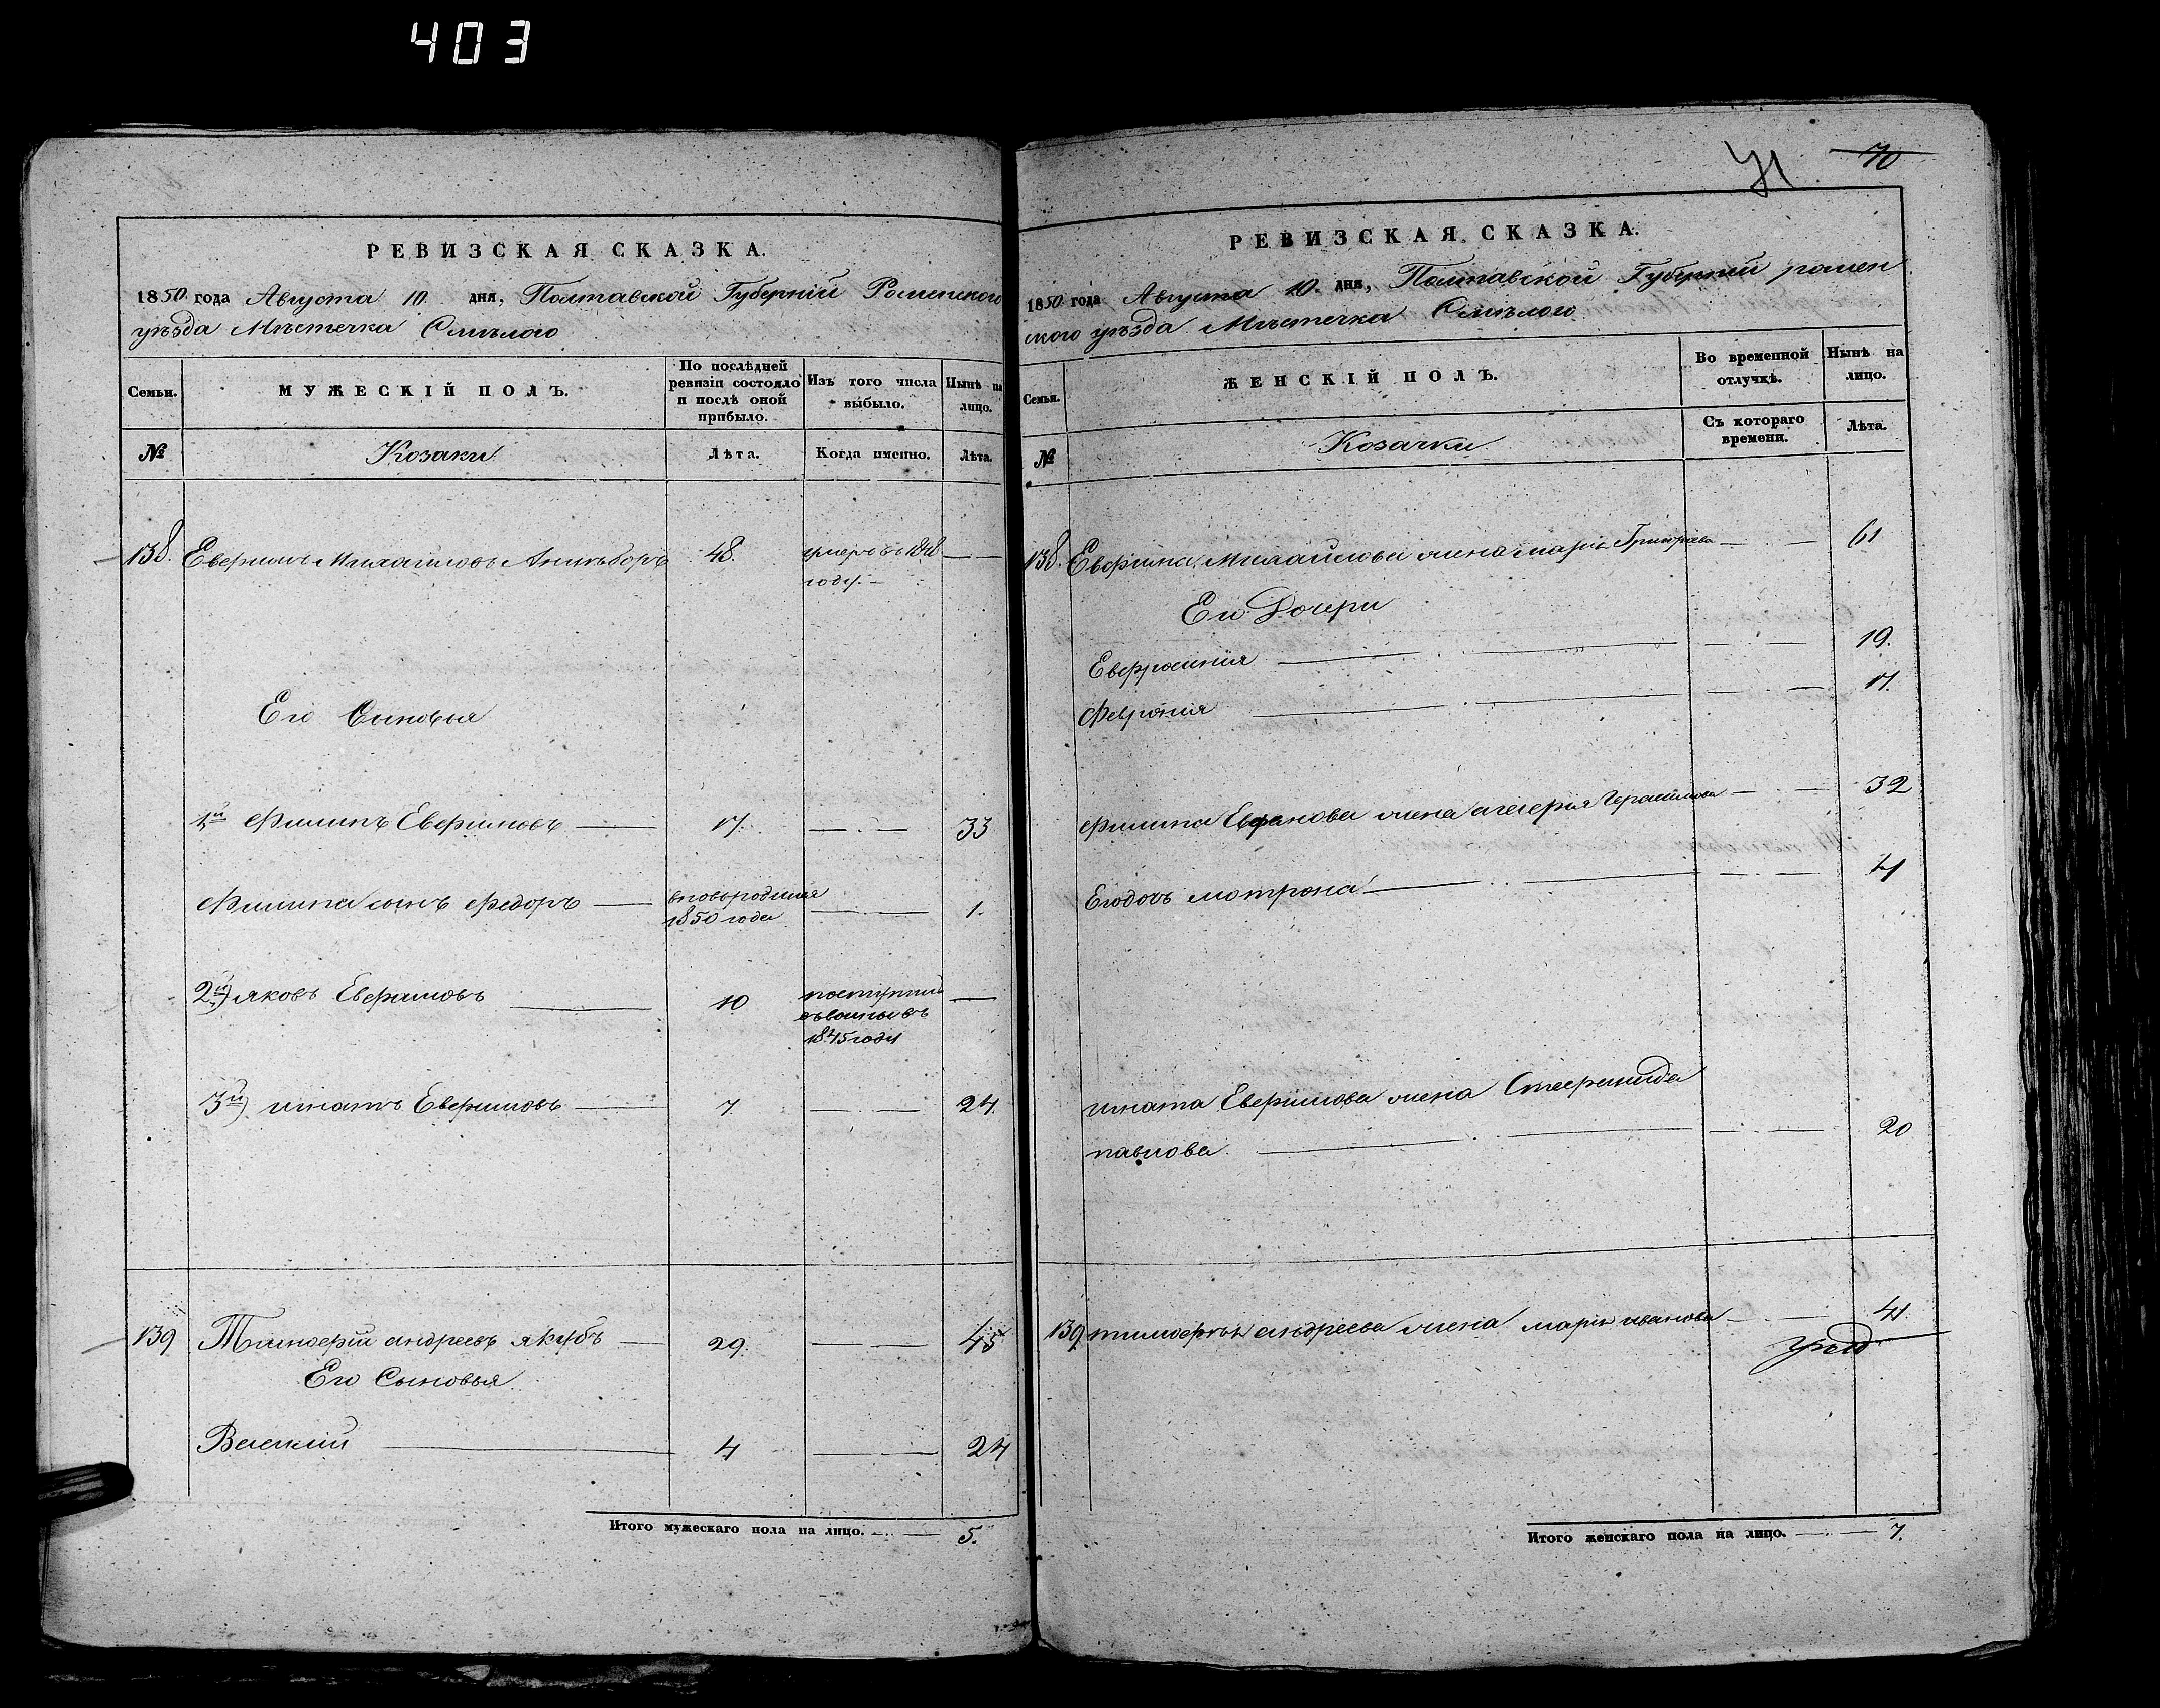 403
РЕВИЗСКАЯ СКАЗКА.
1850 года Августа 10 дня, Полтавской Губерніи Роменскаго
уѣзда Мѣстечка Смѣлого
Семьи.
МУЖЕСКІЙ ПОЛЪ.
По послѣдней
ревизіи состояло
и послѣ оной
прибыло.
Изъ того числа
выбыло.
Нынѣ на
лицо.
№
Козаки
Лѣта.
Когда именно.
Лѣта.
138. Евфимъ Михайловъ 48. умеръ въ 1848
году.
Его Сыновья
1й Филипъ Евфимовъ 17. 33
Филипа сынъ Федоръ вновьродился 1.
1850 года
2й) яковъ Евфимовъ 10 поступилъ
въ
1845 году
3й) игнатъ Евфимовъ 7. 24.
139 Тимофій андреевъ якубъ 29. 45
Его Сыновья
Василий 4 24
Итого мужескаго пола на лицо. 5.
71 70
РЕВИЗСКАЯ СКАЗКА.
1850 года Августа 10. дня, Полтавской Губерніи ромен
ского уѣзда Мѣстечка Смѣлого
Семьи.
ЖЕНСКІЙ ПОЛЪ.
Во временной
отлучкѣ.
Нынѣ на
лицо.
№
Козачки
Съ котораго
времени.
Лѣта.
138. Евфима Михайлова жена марія Григорьева 61
Его Дочери
Евфросинія 19.
Февронія 17.
Филипа Евфимова жена гликерія Герасимова 32
Егодочь мотрона 4
игната Евфимова жена Стефанида
павлова. 20
139 тимофія андреева жена марія иванова 41
Итого женскаго пола на лицо. 7.